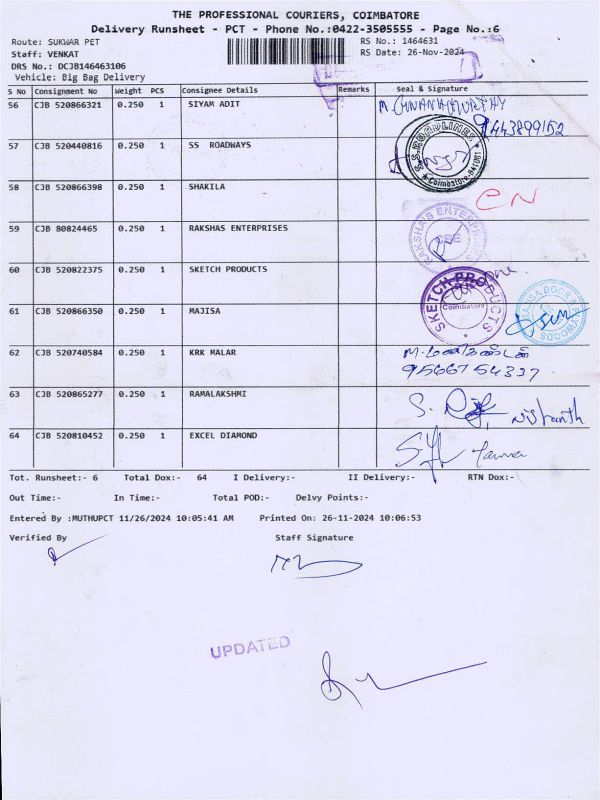 THE PROFESSIONAL COURIERS, COIMBATORE
Delivery Runsheet - PCT - Phone No.:0422-3505555 - Page No.:6
Route: SUKWAR PET RS No.: 1464631
Staff: VENKAT RS Date: 26-Nov-2024
DRS No.: DCJB146463106
Vehicle: Big Bag Delivery
S No Consignment No Weight PCS Consignee Details Remarks Seal & Signature
56 CJB 520866321 0.250 1 SIYAM ADIT
57 CJB 520440816 0.250 1 SS ROADWAYS
Coimbatore-641001
58 CJB 520866398 0.250 1 SHAKILA
59 CJB 80824465 0.250 1 RAKSHAS ENTERPRISES
60 CJB 520822375 0.250 1 SKETCH PRODUCTS
SKETCH PRODUCTS
Coimbatore
61 CJB 520866350 0.250 1 MAJISA
62 CJB 520740584 0.250 1 KRK MALAR M.மணிகண்டன்
9566754337
63 CJB 520865277 0.250 1 RAMALAKSHMI
64 CJB 520810452 0.250 1 EXCEL DIAMOND
Tot. Runsheet:- 6 Total Dox:- 64 I Delivery:- II Delivery:- RTN Dox:-
Out Time:- In Time:- Total POD:- Delvy Points:-
Entered By :MUTHUPCT 11/26/2024 10:05:41 AM Printed On: 26-11-2024 10:06:53
Verified By Staff Signature
UPDATED